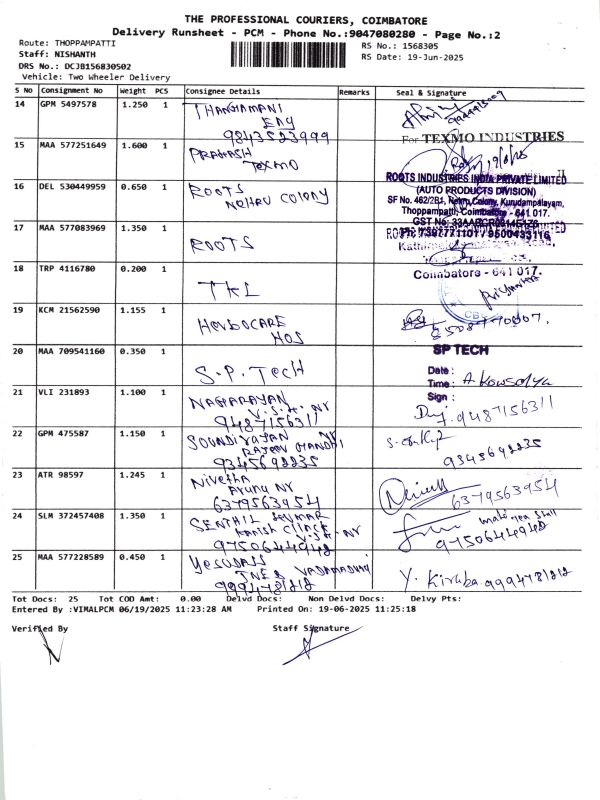 THE PROFESSIONAL COURIERS, COIMBATORE
Delivery Runsheet - PCM - Phone No.:9047080280 - Page No.:2
Route: THOPPAMPATTI
Staff: NISHANTH
DRS No.: DCJB156830502
Vehicle: Two Wheeler Delivery
RS No.: 1568305
RS Date: 19-Jun-2025
S No Consignment No Weight PCS Consignee Details Remarks Seal & Signature
14 GPM 5497578 1.250 1 THANGAMANI
9843523999
For TEXMO INDUSTRIES
15 MAA 577251649 1.600 1 PRAKASH
TEXMO
16 DEL 530449959 0.650 1 ROOTS
NEHRU COLONY
ROOTS INDUSTRIES INDIA PRIVATE LIMITED
(AUTO PRODUCTS DIVISION)
SF No. 462/2B1, Nehru Colony, Kurudampalayam,
Thoppampatti, Coimbatore - 641 017.
17 MAA 577083969 1.350 1 ROOTS
18 TRP 4116780 0.200 1
Coimbatore - 641 017.
19 KCM 21562590 1.155 1
HOS
20 MAA 709541160 0.350 1 S.P. TECH
SP TECH
Date :
Time : A. Kowsalya
Sign :
21 VLI 231893 1.100 1 NAGARAYAN
V.S.K. NR
9487156311
9487156311
22 GPM 475587 1.150 1 SOUNDIRAJAN NR
RAJEEV GANDHI
9345698835
9345698835
23 ATR 98597 1.245 1 Nivetha
Arunu NR
6379563954
6379563954
24 SLM 372457408 1.350 1 SENTHIL KUMAR
V.S.K. NR
9750644948
9750644948
25 MAA 577228589 0.450 1 YESUDASS
TNEB VADAMADURAI
9994781818
Y. Kiruba 9994781818
Tot Docs: 25 Tot COD Amt: 0.00 Delvd Docs: Non Delvd Docs: Delvy Pts:
Entered By :VIMALPCM 06/19/2025 11:23:28 AM Printed On: 19-06-2025 11:25:18
Verified By Staff Signature